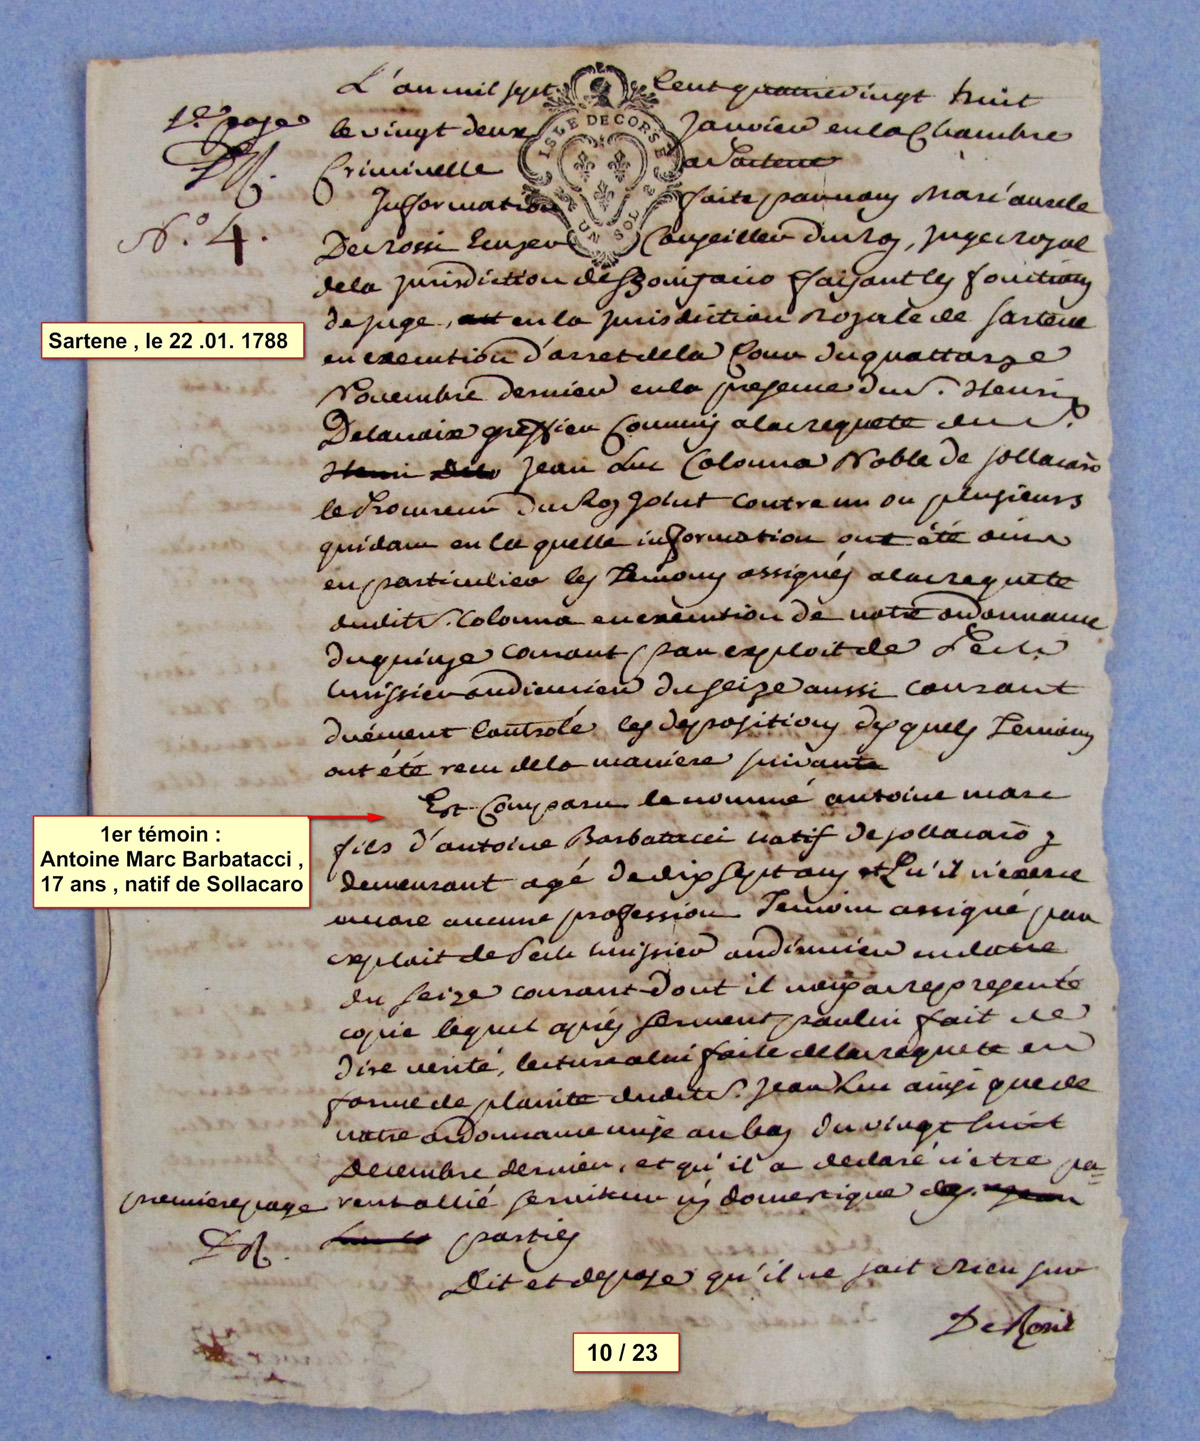 L'an mil sept Cent quatrevingt huit
1re page
le vingt deux Janvier en la Chambre
ISLE DE CORSE
UN SOL
DR.
Criminelle a Sartene
Information faite par nous Marc aurele
N.o 4.
De Rossi Conseiller du Roy, juge royal
de la jurisdiction de Bonifacio faisant les fonctions
de juge, en la jurisdiction Royale de Sartene
Sartene , le 22 .01. 1788
en execution d'arret de la Cour du quattorze
Novembre dernier en la presence du S. Henri
Delacroix greffier Commis a la requete du S.r
Henri Jean Luc Colonna Noble de Sollacarò
le Procureur du Roy Joint contre un ou plusieurs
quidam en la quelle information ont été ouis
en particulier les Temoins assignés a la requette
dudit S. Colonna en execution de notre ordonnance
du quinze courant par exploit de
huissier audiencier du seize aussi courant
duëment Controlé les depositions desquels Temoins
ont été recu de la maniere suivante
Est Comparu le nommé antoine marc
1er témoin :
Antoine Marc Barbatacci ,
17 ans , natif de Sollacaro
fils d'antoine Barbatacci natif de Sollacarò y
demeurant agé de dix sept ans et qu'il n'exerce
encore aucune profession Temoin assigné par
exploit de huissier audiencier en datte
du seize courant dont il nous a representé
copie lequel après serment par lui fait de
dire verité, lecture a lui faite de la requete en
forme de plainte dudit S. Jean Luc ainsi que de
notre ordonnance mise au bas du vingt huit
Decembre dernier, et qu'il a declaré n'etre pa-
premiere page
rent allié serviteur ny domestique des
DR.
parties
Dit et depose qu'il ne sait rien sur
De Rossi
10 / 23